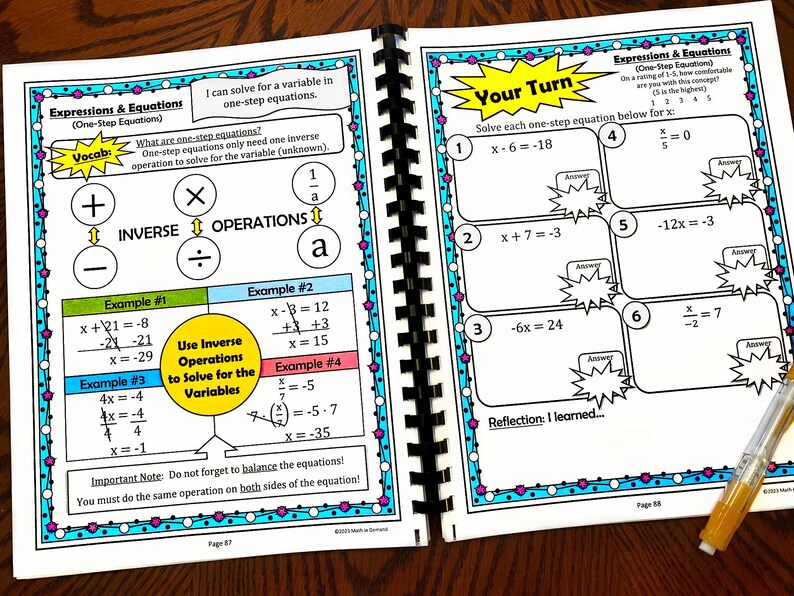 I can solve for a variable in
one-step equations.
Expressions & Equations
(One-Step Equations)
Vocab:
What are one-step equations?
One-step equations only need one inverse
operation to solve for the variable (unknown).
+ × 1/a
INVERSE OPERATIONS
− ÷ a
Example #1
x + 21 = -8
-21 -21
x = -29
Example #2
x - 3 = 12
+3 +3
x = 15
Use Inverse
Operations
to Solve for the
Variables
Example #3
4x = -4
4x = -4
4 4
x = -1
Example #4
x/7 = -5
7 · (x/7) = -5 · 7
x = -35
Important Note: Do not forget to balance the equations!
You must do the same operation on both sides of the equation!
©2023 Math in Demand
Page 87
Your Turn
Expressions & Equations
(One-Step Equations)
On a rating of 1-5, how comfortable
are you with this concept?
(5 is the highest)
1 2 3 4 5
Solve each one-step equation below for x:
1
x - 6 = -18
Answer
2
x + 7 = -3
Answer
3
-6x = 24
Answer
4
x/5 = 0
Answer
5
-12x = -3
Answer
6
x/-2 = 7
Answer
Reflection: I learned...
©2023 Math
Page 88